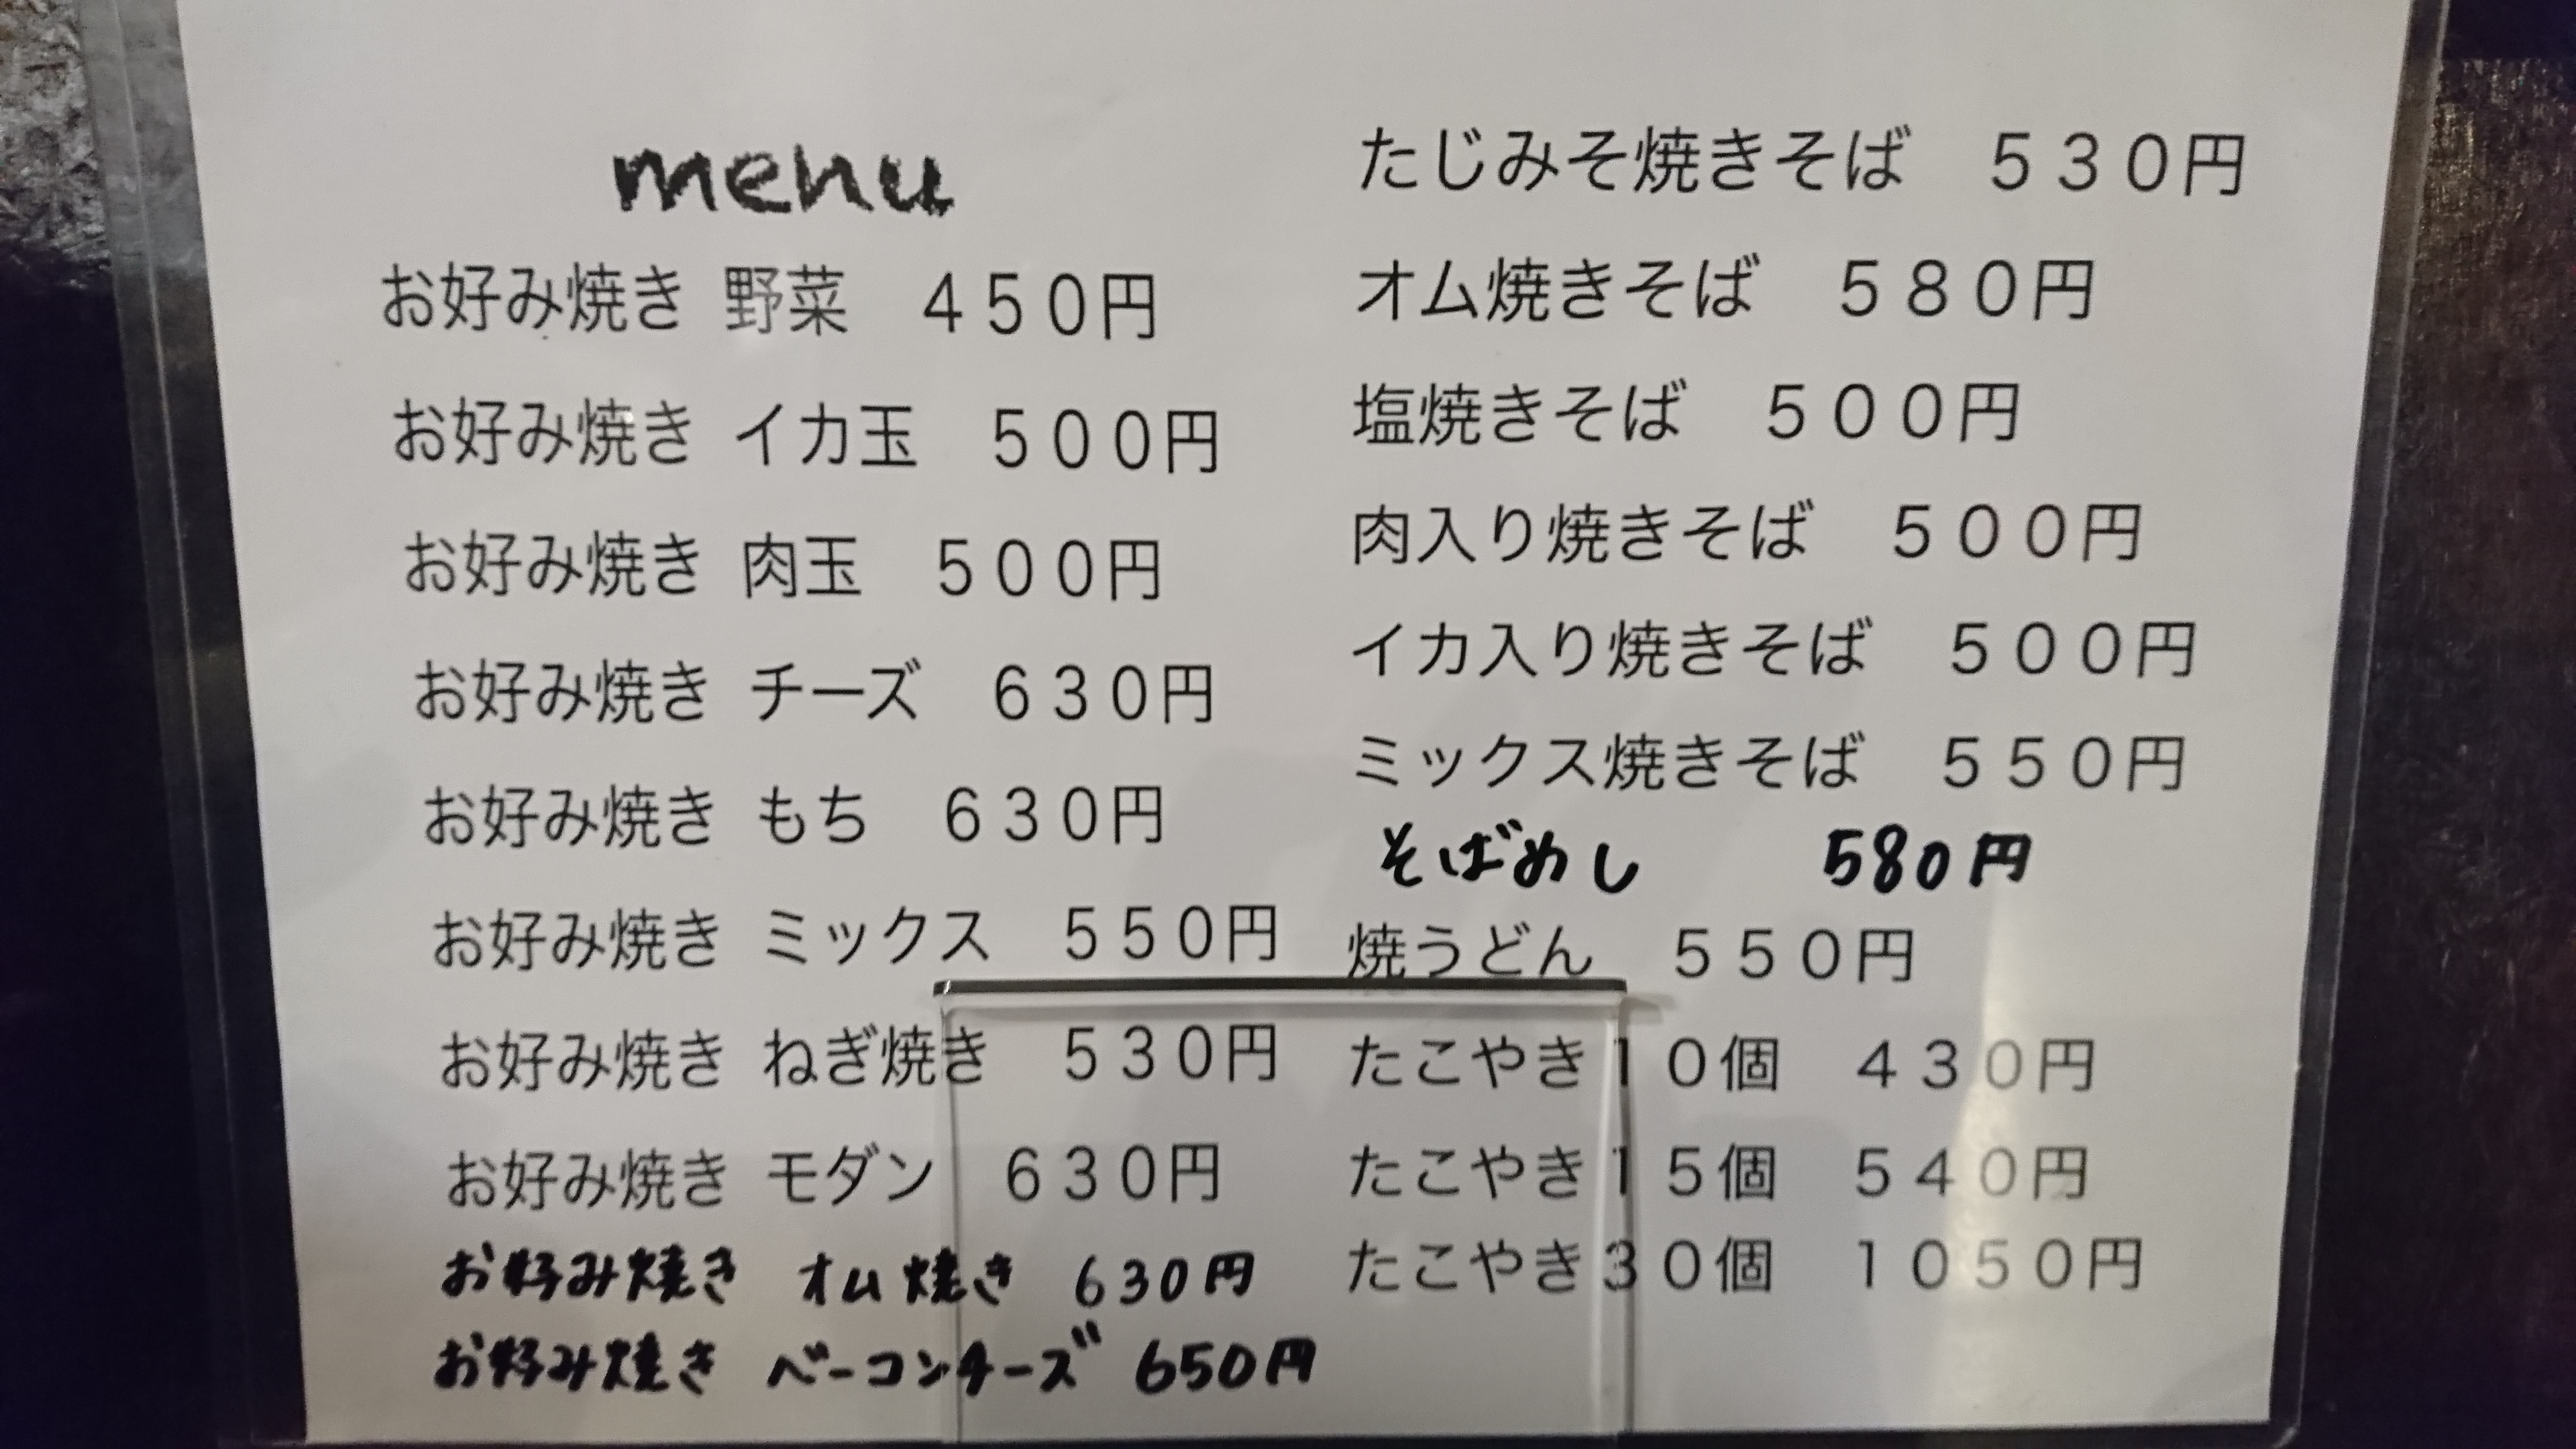 menu
お好み焼き 野菜　４５０円
お好み焼き イカ玉　５００円
お好み焼き 肉玉　５００円
お好み焼き チーズ　６３０円
お好み焼き もち　６３０円
お好み焼き ミックス　５５０円
お好み焼き ねぎ焼き　５３０円
お好み焼き モダン　６３０円
お好み焼き オム焼き 630円
お好み焼き ベーコンチーズ 650円
たじみそ焼きそば　５３０円
オム焼きそば　５８０円
塩焼きそば　５００円
肉入り焼きそば　５００円
イカ入り焼きそば　５００円
ミックス焼きそば　５５０円
そばめし 580円
焼うどん　５５０円
たこやき１０個　４３０円
たこやき１５個　５４０円
たこやき３０個　１０５０円